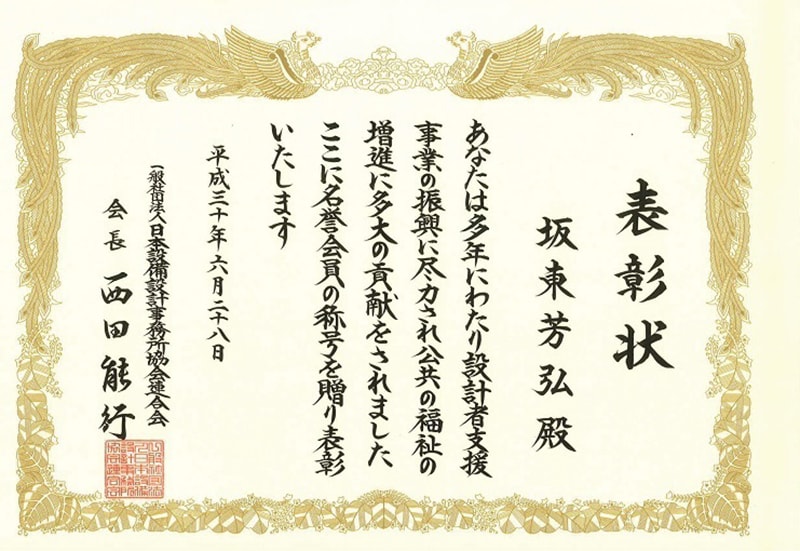 表彰状
坂東芳弘殿
あなたは多年にわたり設計者支援
事業の振興に尽力され公共の福祉の
増進に多大の貢献をされました
ここに名誉会員の称号を贈り表彰
いたします
平成三十年六月二十八日
一般社団法人日本設備設計事務所協会連合会
会長 西田能行